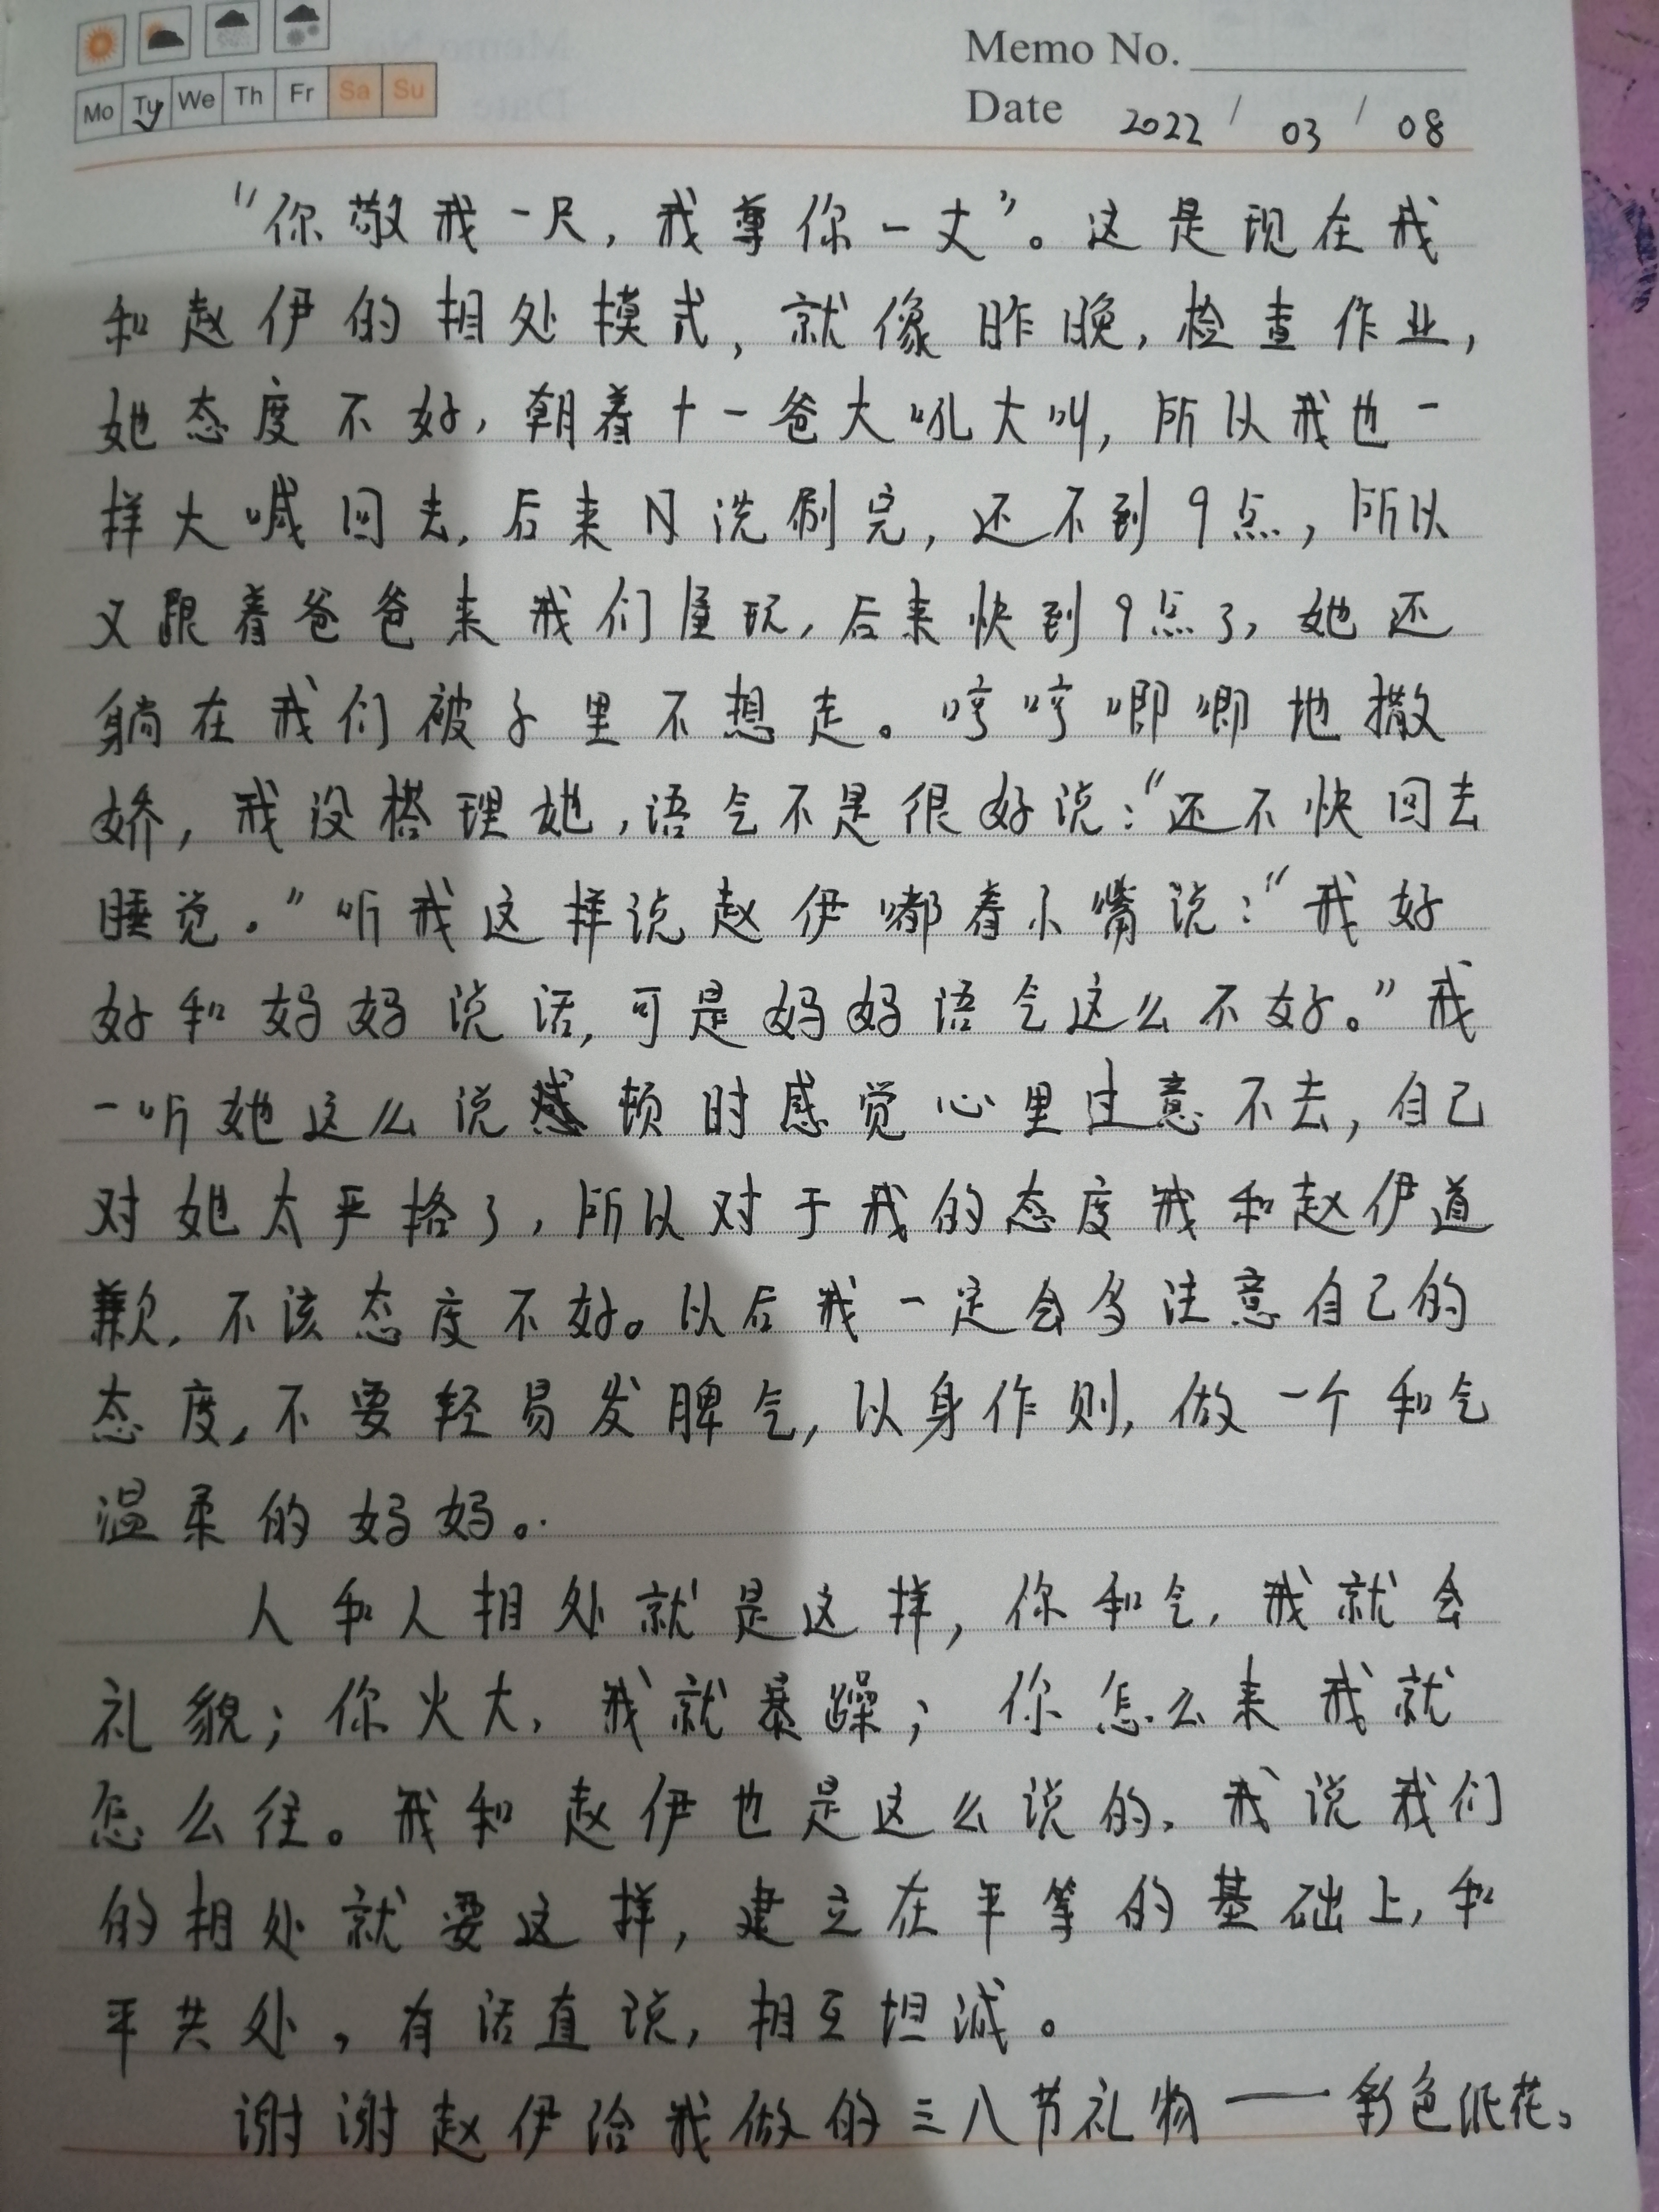 Memo No.
Mo Tu We Th Fr Sa Su
Date 2022 / 03 / 08
“你敬我一尺，我尊你一丈”。这是现在我
和赵伊的相处模式，就像昨晚，检查作业，
她态度不好，朝着十一爸大吼大叫，所以我也一
样大喊回去，后来洗刷完，还不到9点，所以
又跟着爸爸来我们屋玩，后来快到9点了，她还
躺在我们被子里不想走。哼哼唧唧地撒
娇，我没搭理她，语气不是很好说：“还不快回去
睡觉。”听我这样说赵伊嘟着小嘴说：“我好
好和妈妈说话，可是妈妈语气这么不好。”我
一听她这么说顿时感觉心里过意不去，自己
对她太严格了，所以对于我的态度我和赵伊道
歉，不该态度不好。以后我一定会多注意自己的
态度，不要轻易发脾气，以身作则，做一个和气
温柔的妈妈。
人和人相处就是这样，你和气，我就会
礼貌；你火大，我就暴躁；你怎么来我就
怎么往。我和赵伊也是这么说的，我说我们
的相处就要这样，建立在平等的基础上，和
平共处，有话直说，相互坦诚。
谢谢赵伊给我做的三八节礼物——彩色纸花。